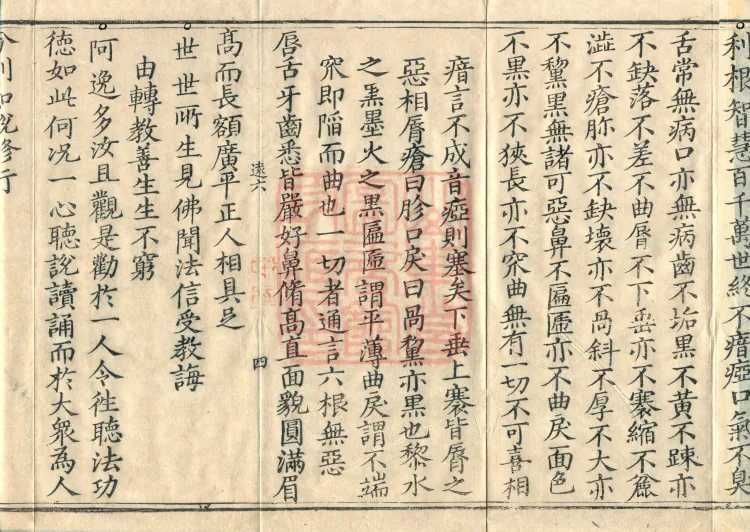 利根智慧百千萬世終不瘖瘂口氣不臭
舌常無病口亦無病齒不垢黒不黄不踈亦
不缺落不差不曲脣不下垂亦不褰縮不麄
澁不瘡胗亦不缺壞亦不喎斜不厚不大亦
不黧黒無諸可惡鼻不匾㔸亦不曲戾面色
不黒亦不狹長亦不窊曲無有一切不可喜相
瘖言不成音瘂則塞矣下垂上褰皆脣之
惡相脣瘡曰胗口戾曰喎黧亦黒也黎水
之黒墨火之黒匾㔸謂平薄曲戾謂不端
窊即陷而曲也一切者通言六根無惡
脣舌牙齒悉皆嚴好鼻脩髙直面貌圓滿眉
遠六
四
髙而長額廣平正人相具足
世世所生見佛聞法信受教誨
由轉教善生生不窮
阿逸多汝且觀是勸於一人令徃聽法功
徳如此何况一心聽說讀誦而於大衆為人
分別如說修行